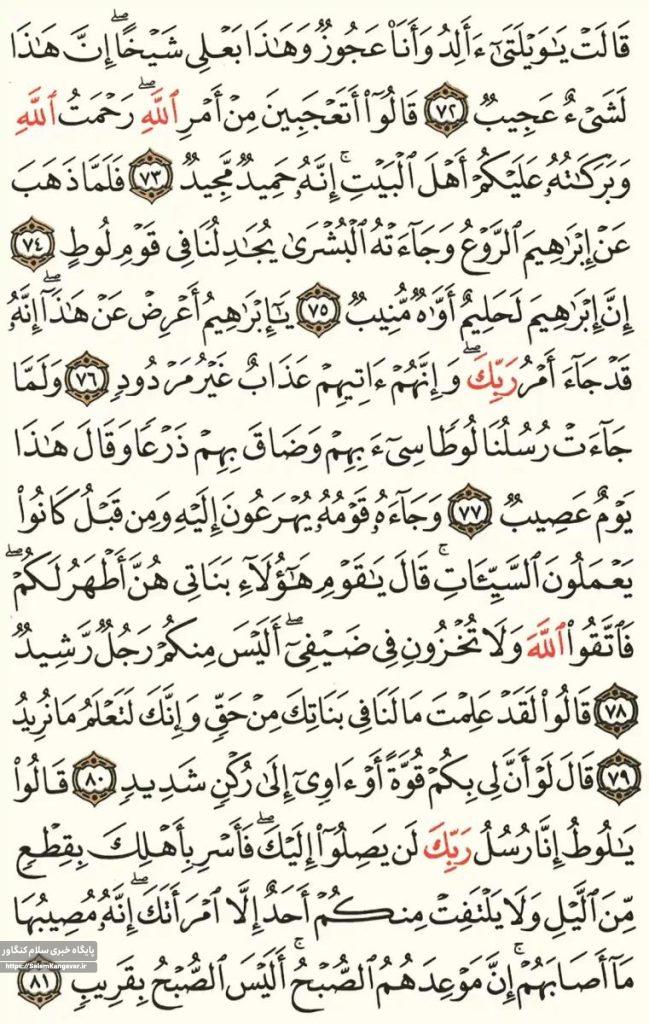 قَالَتْ يَٰوَيْلَتَىٰٓ ءَأَلِدُ وَأَنَا۠ عَجُوزٌ وَهَٰذَا بَعْلِى شَيْخًا ۖ إِنَّ هَٰذَا
لَشَىْءٌ عَجِيبٌ ٧٢ قَالُوٓا۟ أَتَعْجَبِينَ مِنْ أَمْرِ ٱللَّهِ ۖ رَحْمَتُ ٱللَّهِ
وَبَرَكَٰتُهُۥ عَلَيْكُمْ أَهْلَ ٱلْبَيْتِ ۚ إِنَّهُۥ حَمِيدٌ مَّجِيدٌ ٧٣ فَلَمَّا ذَهَبَ
عَنْ إِبْرَٰهِيمَ ٱلرَّوْعُ وَجَآءَتْهُ ٱلْبُشْرَىٰ يُجَٰدِلُنَا فِى قَوْمِ لُوطٍ ٧٤
إِنَّ إِبْرَٰهِيمَ لَحَلِيمٌ أَوَّٰهٌ مُّنِيبٌ ٧٥ يَٰٓإِبْرَٰهِيمُ أَعْرِضْ عَنْ هَٰذَآ ۖ إِنَّهُۥ
قَدْ جَآءَ أَمْرُ رَبِّكَ ۖ وَإِنَّهُمْ ءَاتِيهِمْ عَذَابٌ غَيْرُ مَرْدُودٍ ٧٦ وَلَمَّا
جَآءَتْ رُسُلُنَا لُوطًا سِىٓءَ بِهِمْ وَضَاقَ بِهِمْ ذَرْعًا وَقَالَ هَٰذَا
يَوْمٌ عَصِيبٌ ٧٧ وَجَآءَهُۥ قَوْمُهُۥ يُهْرَعُونَ إِلَيْهِ وَمِن قَبْلُ كَانُوا۟
يَعْمَلُونَ ٱلسَّيِّـَٔاتِ ۚ قَالَ يَٰقَوْمِ هَٰٓؤُلَآءِ بَنَاتِى هُنَّ أَطْهَرُ لَكُمْ ۖ
فَٱتَّقُوا۟ ٱللَّهَ وَلَا تُخْزُونِ فِى ضَيْفِىٓ ۖ أَلَيْسَ مِنكُمْ رَجُلٌ رَّشِيدٌ
٧٨ قَالُوا۟ لَقَدْ عَلِمْتَ مَا لَنَا فِى بَنَاتِكَ مِنْ حَقٍّ وَإِنَّكَ لَتَعْلَمُ مَا نُرِيدُ
٧٩ قَالَ لَوْ أَنَّ لِى بِكُمْ قُوَّةً أَوْ ءَاوِىٓ إِلَىٰ رُكْنٍ شَدِيدٍ ٨٠ قَالُوا۟
يَٰلُوطُ إِنَّا رُسُلُ رَبِّكَ لَن يَصِلُوٓا۟ إِلَيْكَ ۖ فَأَسْرِ بِأَهْلِكَ بِقِطْعٍ
مِّنَ ٱلَّيْلِ وَلَا يَلْتَفِتْ مِنكُمْ أَحَدٌ إِلَّا ٱمْرَأَتَكَ ۖ إِنَّهُۥ مُصِيبُهَا
مَآ أَصَابَهُمْ ۚ إِنَّ مَوْعِدَهُمُ ٱلصُّبْحُ ۚ أَلَيْسَ ٱلصُّبْحُ بِقَرِيبٍ ٨١
پایگاه خبری سلام کنگاور
https://SalamKangavar.ir